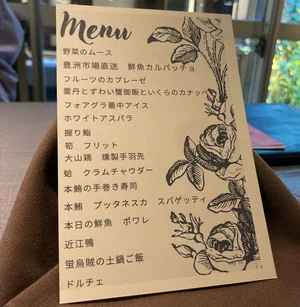 Menu
野菜のムース
豊洲市場直送　鮮魚カルパッチョ
フルーツのカプレーゼ
雲丹とずわい蟹御飯といくらのカナッペ
フォアグラ最中アイス
ホワイトアスパラ
握り鮨
筍　フリット
大山鶏　燻製手羽先
蛤　クラムチャウダー
本鮪の手巻き寿司
本鮪　プッタネスカ　スパゲッティ
本日の鮮魚　ポワレ
近江鴨
蛍烏賊の土鍋ご飯
ドルチェ